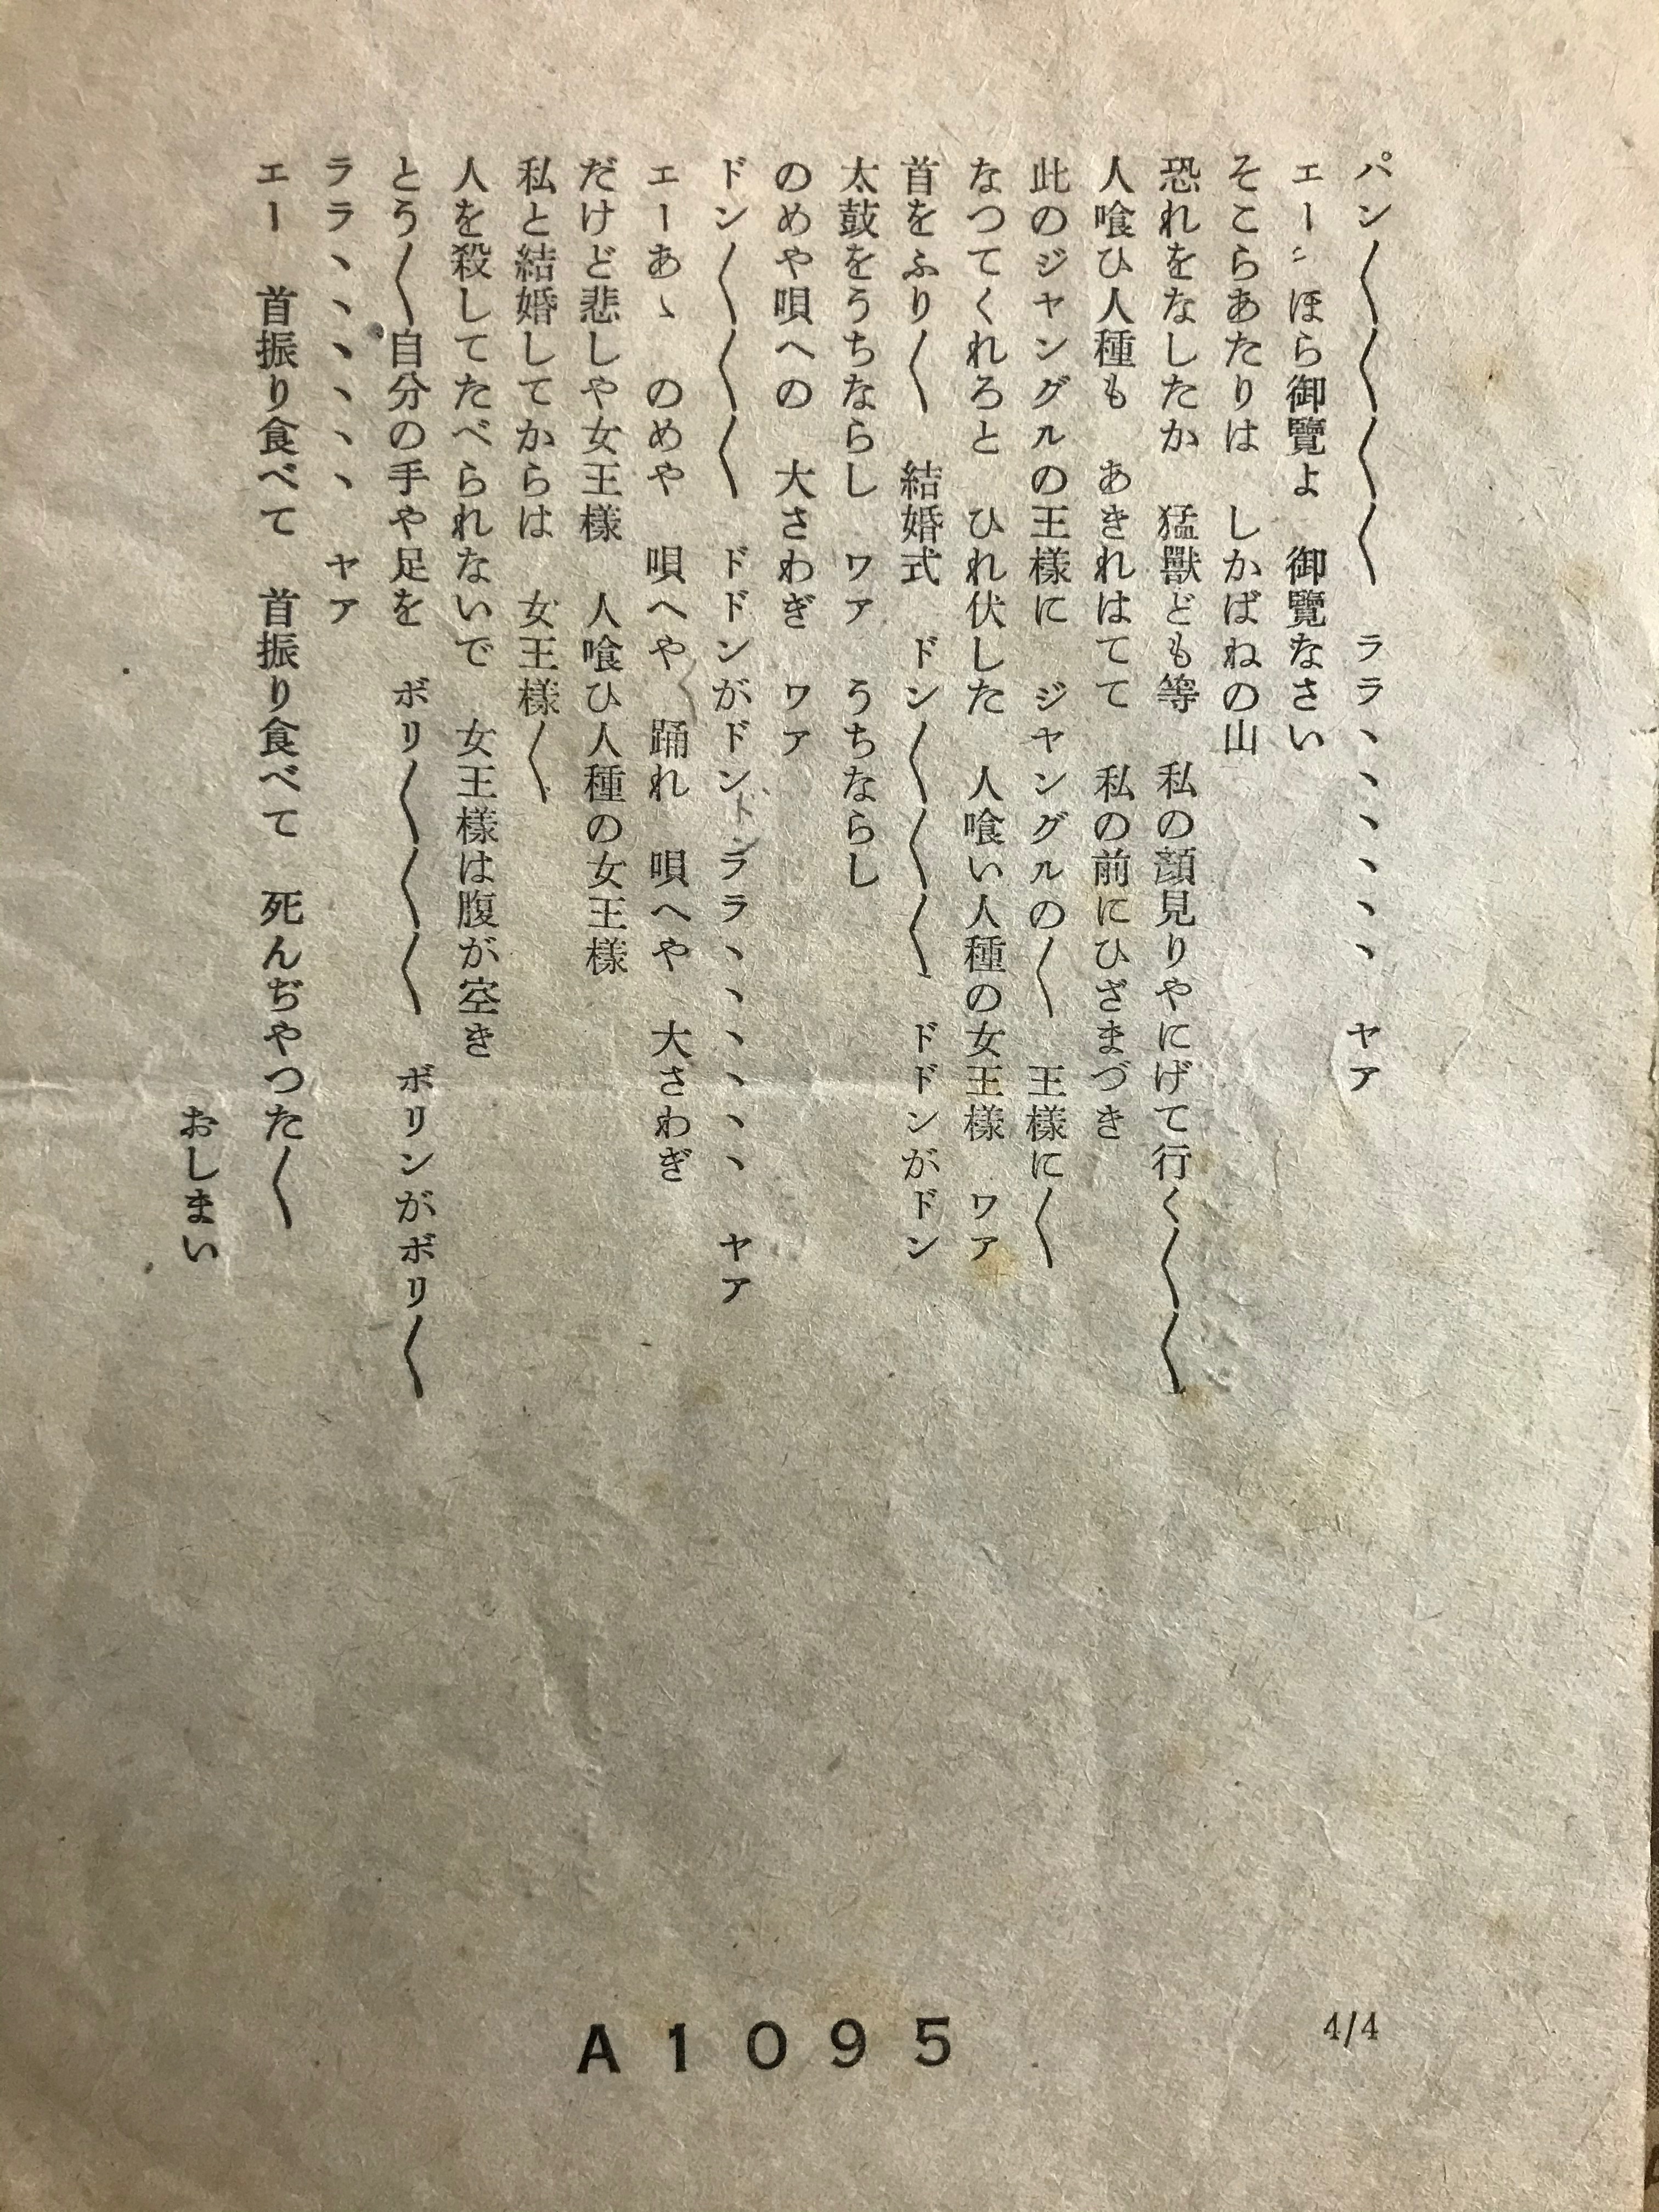 パン〱〱〱〱　ララヽヽヽヽヽヽ　ヤア
エーﾐほら御覽よ　御覽なさい
そこらあたりは　しかばねの山
恐れをなしたか　猛獸ども等　私の顔見りやにげて行く〱〱
人喰ひ人種も　あきれはてて　私の前にひざまづき
此のジヤングルの王樣に　ジヤングルの〱　王樣に〱
なつてくれろと　ひれ伏した　人喰い人種の女王樣　ワア
首をふり〱　結婚式　ドン〱〱〱　ドドンがドン
太鼓をうちならし　ワア　うちならし
のめや唄への　大さわぎ　ワア
ドン〱〱〱　ドドンがドンドンララヽヽヽヽヽヽ　ヤア
エーあゝ　のめや　唄へや　踊れ　唄へや　大さわぎ
だけど悲しや女王樣　人喰ひ人種の女王樣
私と結婚してからは　女王樣〱
人を殺してたべられないで　女王樣は腹が空き
とう〱自分の手や足を　ボリ〱〱〱　ボリンがボリ〱
ララヽヽヽヽヽヽ　ヤア
エー　首振り食べて　首振り食べて　死んぢやつた〱
おしまい
4/4
A1095